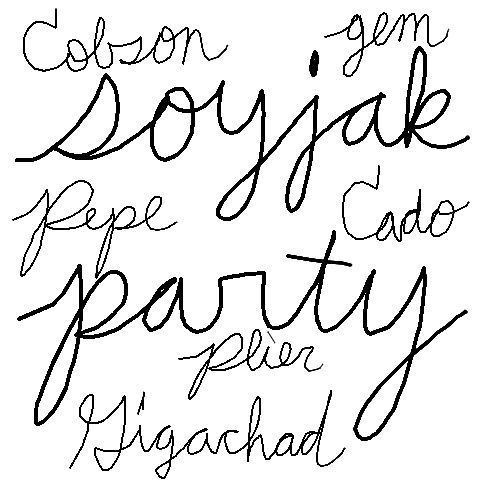 Cobson gem
soyjak
Pepe Cado
party
plier
Gigachad